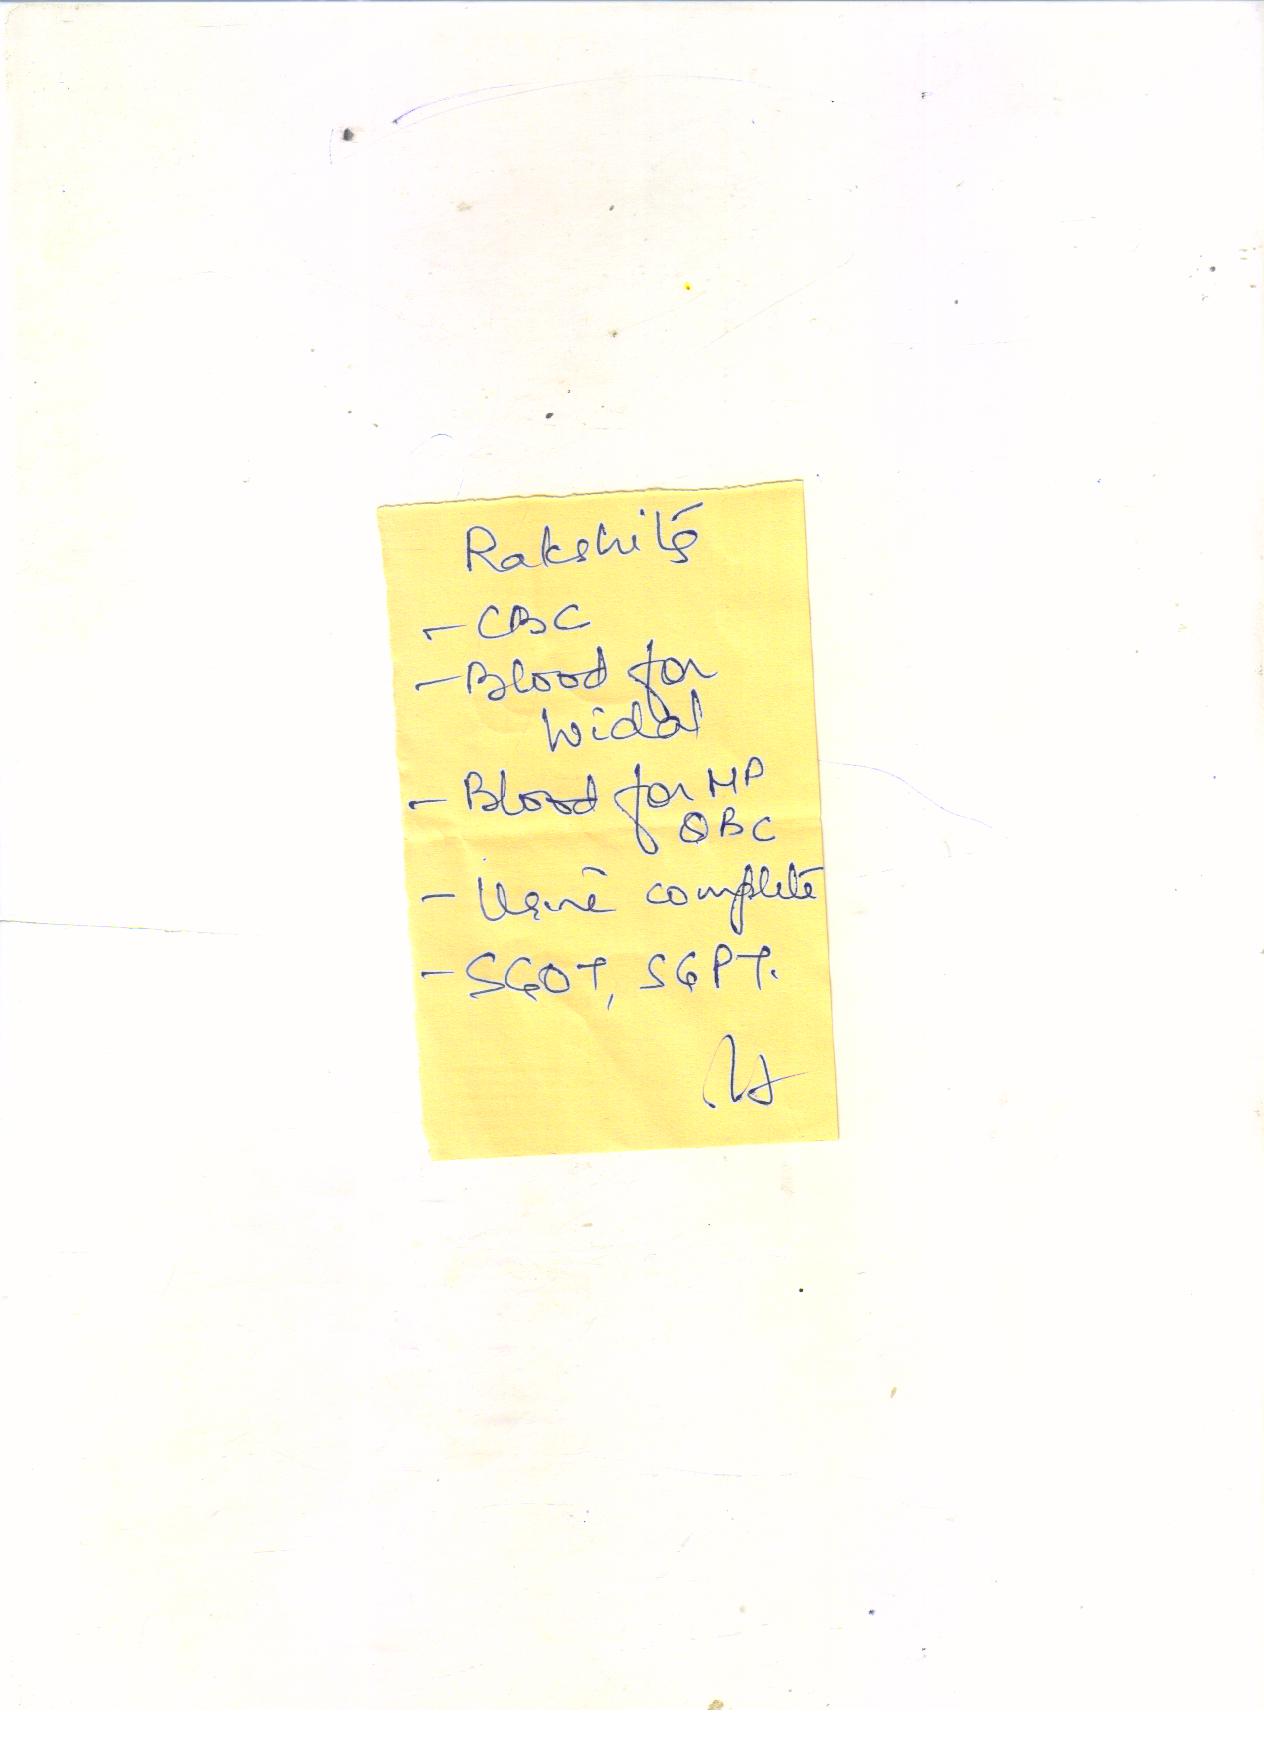 Rakshita
- CBC
- Blood for
Widal
- Blood for MP
QBC
- Urine complete
- SGOT, SGPT.